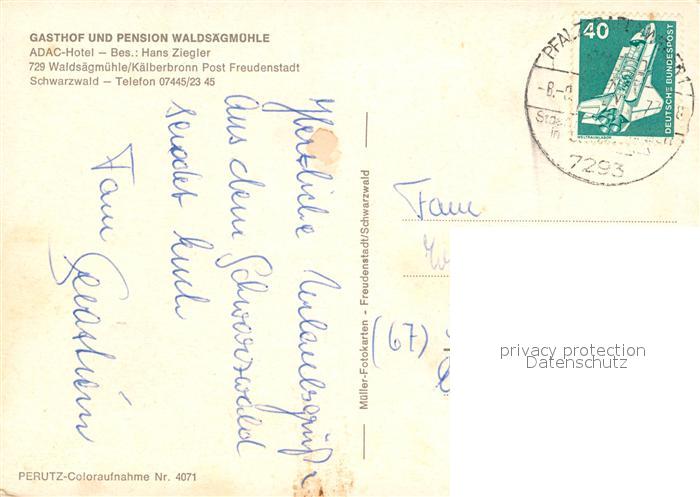 GASTHOF UND PENSION WALDSÄGMÜHLE
ADAC-Hotel – Bes.: Hans Ziegler
729 Waldsägmühle/Kälberbronn Post Freudenstadt
Schwarzwald – Telefon 07445/23 45
Herzliche Urlaubsgrüße
aus dem Schwarzwald
sendet Euch
Fam
PERUTZ-Coloraufnahme Nr. 4071
Müller-Fotokarten - Freudenstadt/Schwarzwald
40
DEUTSCHE BUNDESPOST
WELTRAUMLABOR
7293
Fam
(67)
privacy protection
Datenschutz